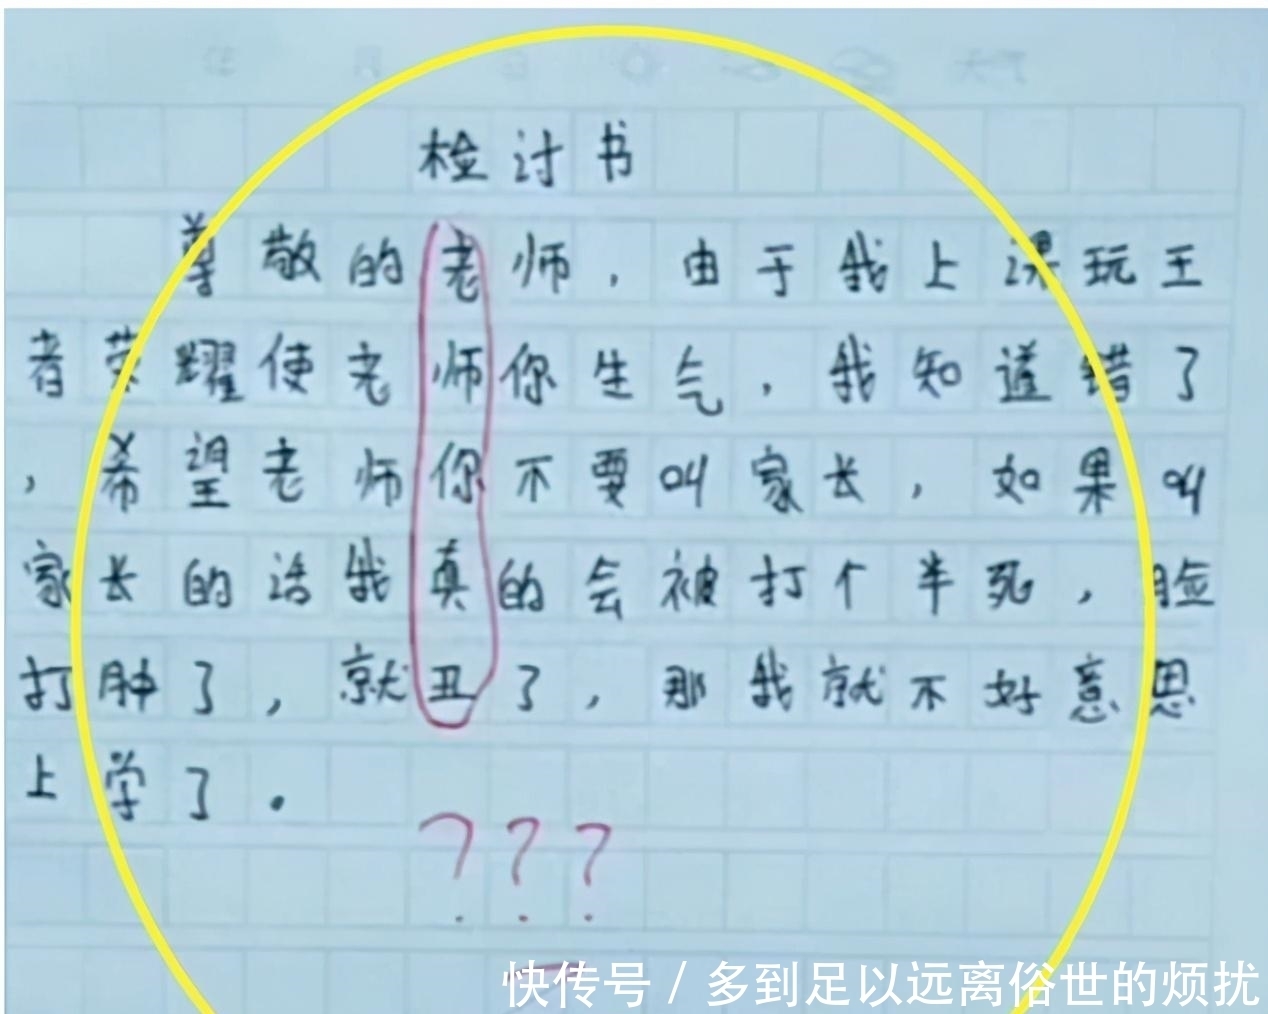 检讨书
尊敬的老师，由于我上课玩王
者荣耀使老师你生气，我知道错了
，希望老师你不要叫家长，如果叫
家长的话我真的会被打个半死，脸
打肿了，就丑了，那我就不好意思
上学了。
???
快传号/多到足以远离俗世的烦扰